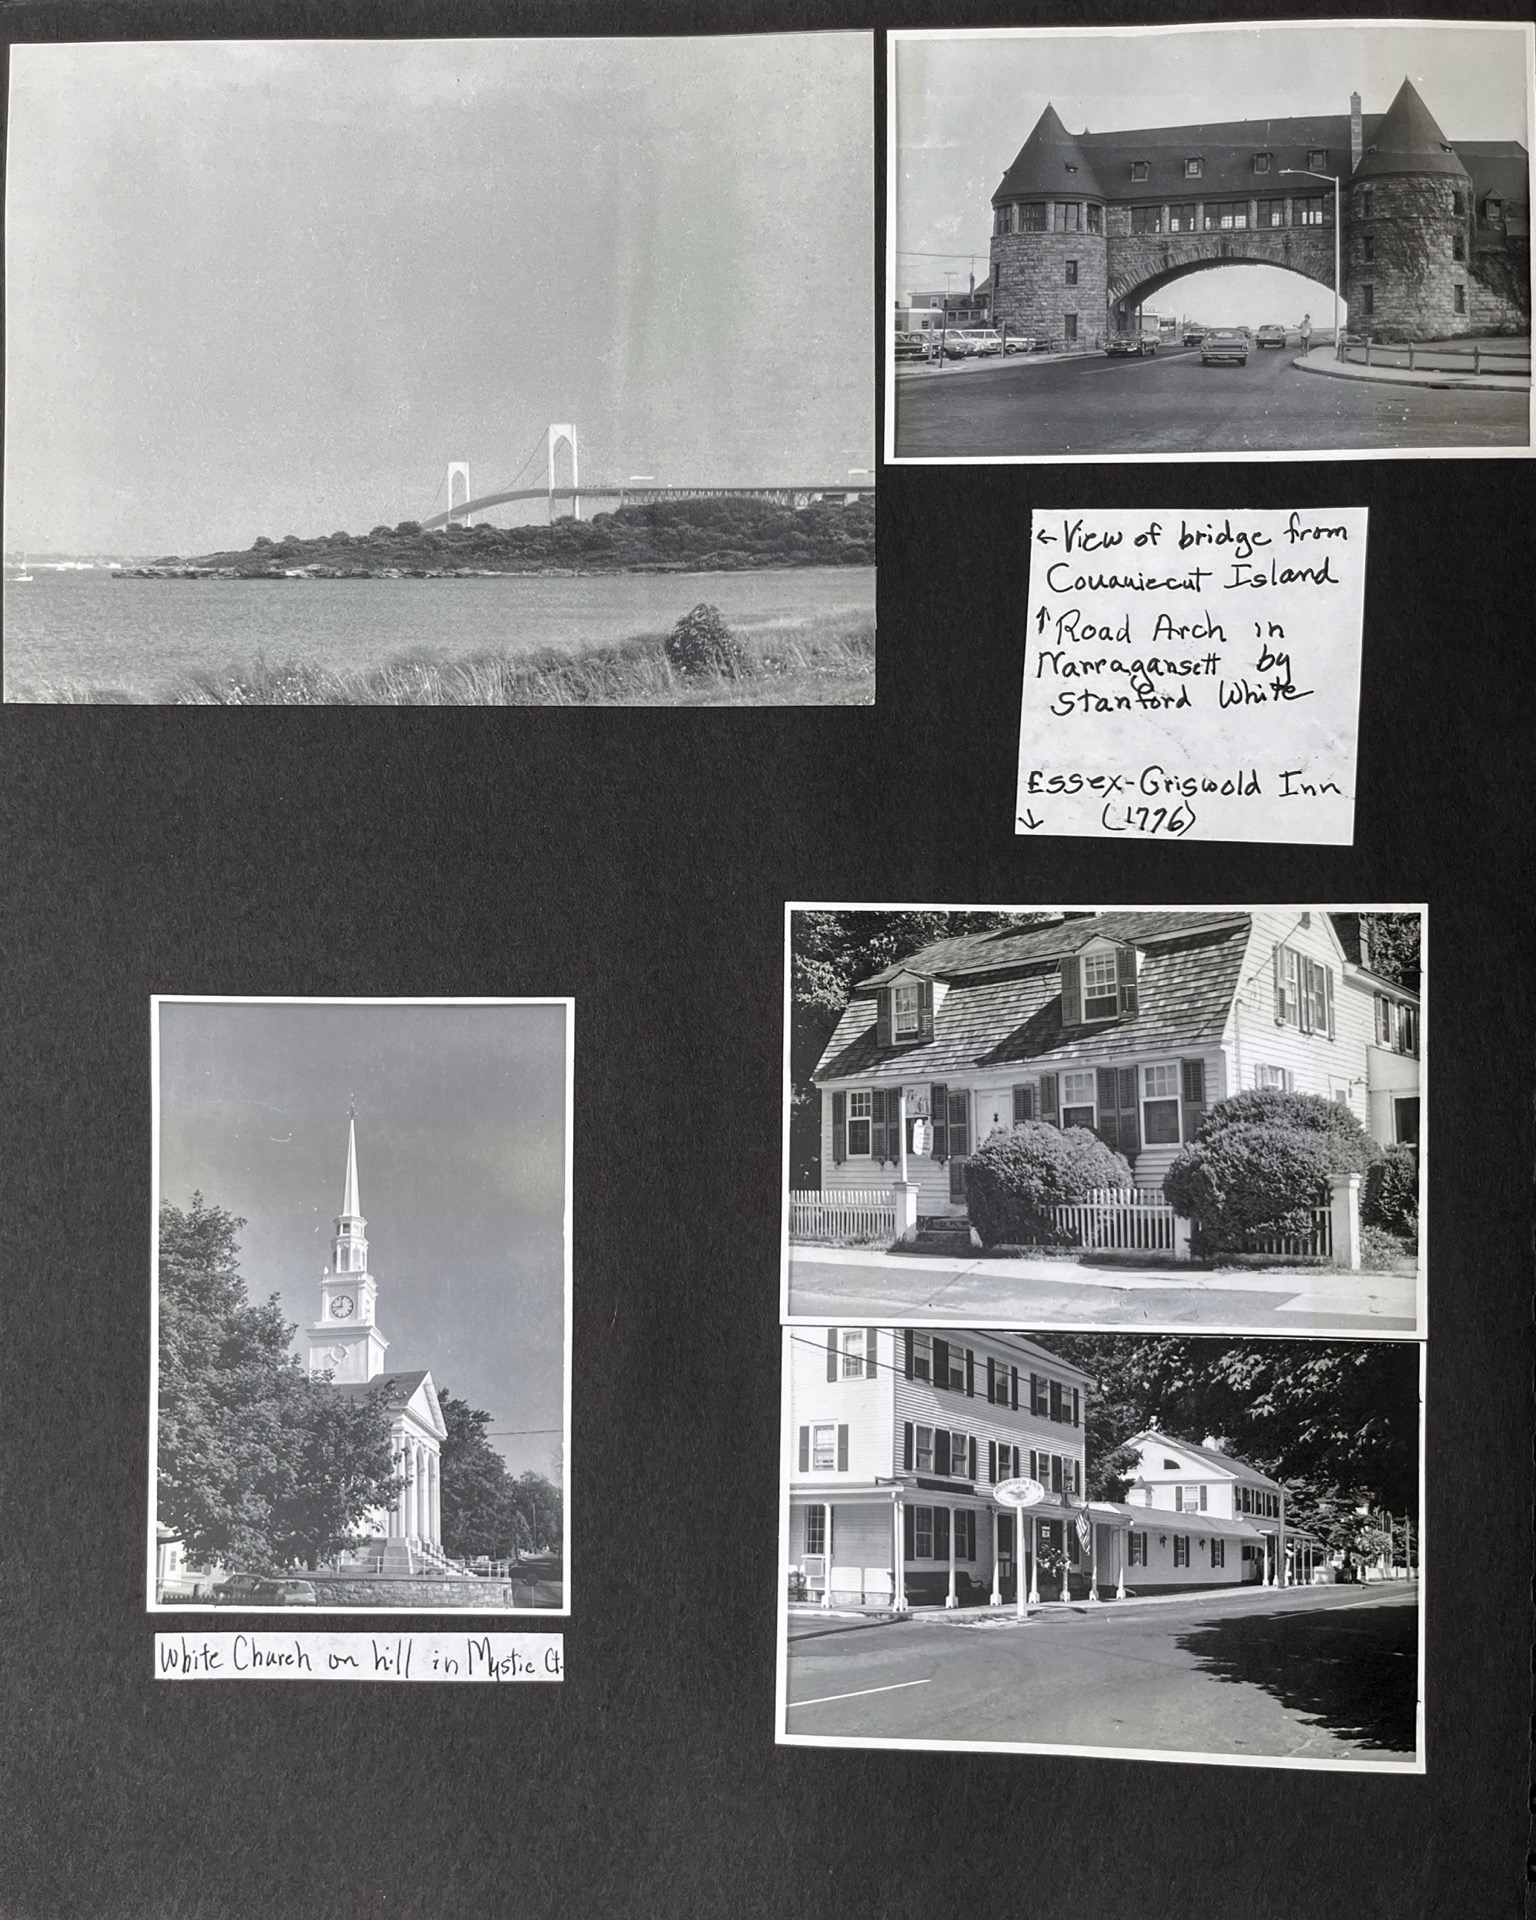 ← View of bridge from
Couauiecut Island
↑ Road Arch in
Narragansett by
Stanford White
Essex-Griswold Inn
↓ (1776)
GRISWOLD INN
White Church on hill in Mystic Ct.